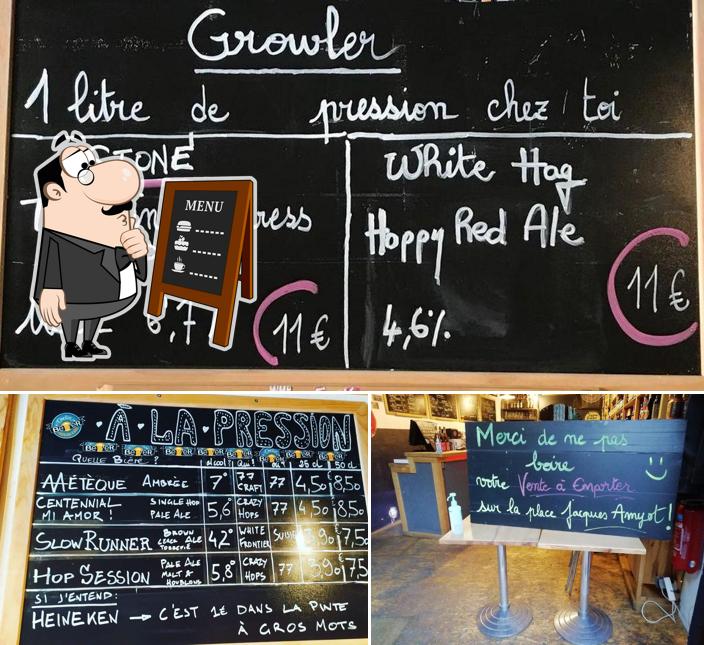 Growler
1 litre de pression chez toi
STONE
ress
11€
White Hag
Hoppy Red Ale
4,6%
11€
MENU
À LA PRESSION
QUELLE BIÈRE ?
25 cl 50 cl
AMÉTÈQUE AMBRÉE 7° 77 CRAFT 77 4,50 8,50
CENTENNIAL MI AMOR ! SINGLE HOP PALE ALE 5,6° CRAZY HOPS 77 4,50 8,50
SLOW RUNNER BROWN ALE TORRÉFIÉ 4,2° WHITE FRONTIER SUISSE 3,90 7,50
HOP SESSION PALE ALE MALT & HOUBLONS 5,8° CRAZY HOPS 77 3,90 7,5
SI J'ENTEND :
HEINEKEN → C'EST 1€ DANS LA PINTE
À GROS MOTS
Merci de ne pas
boire
votre Vente à Emporter
sur la place Jacques Amyot !